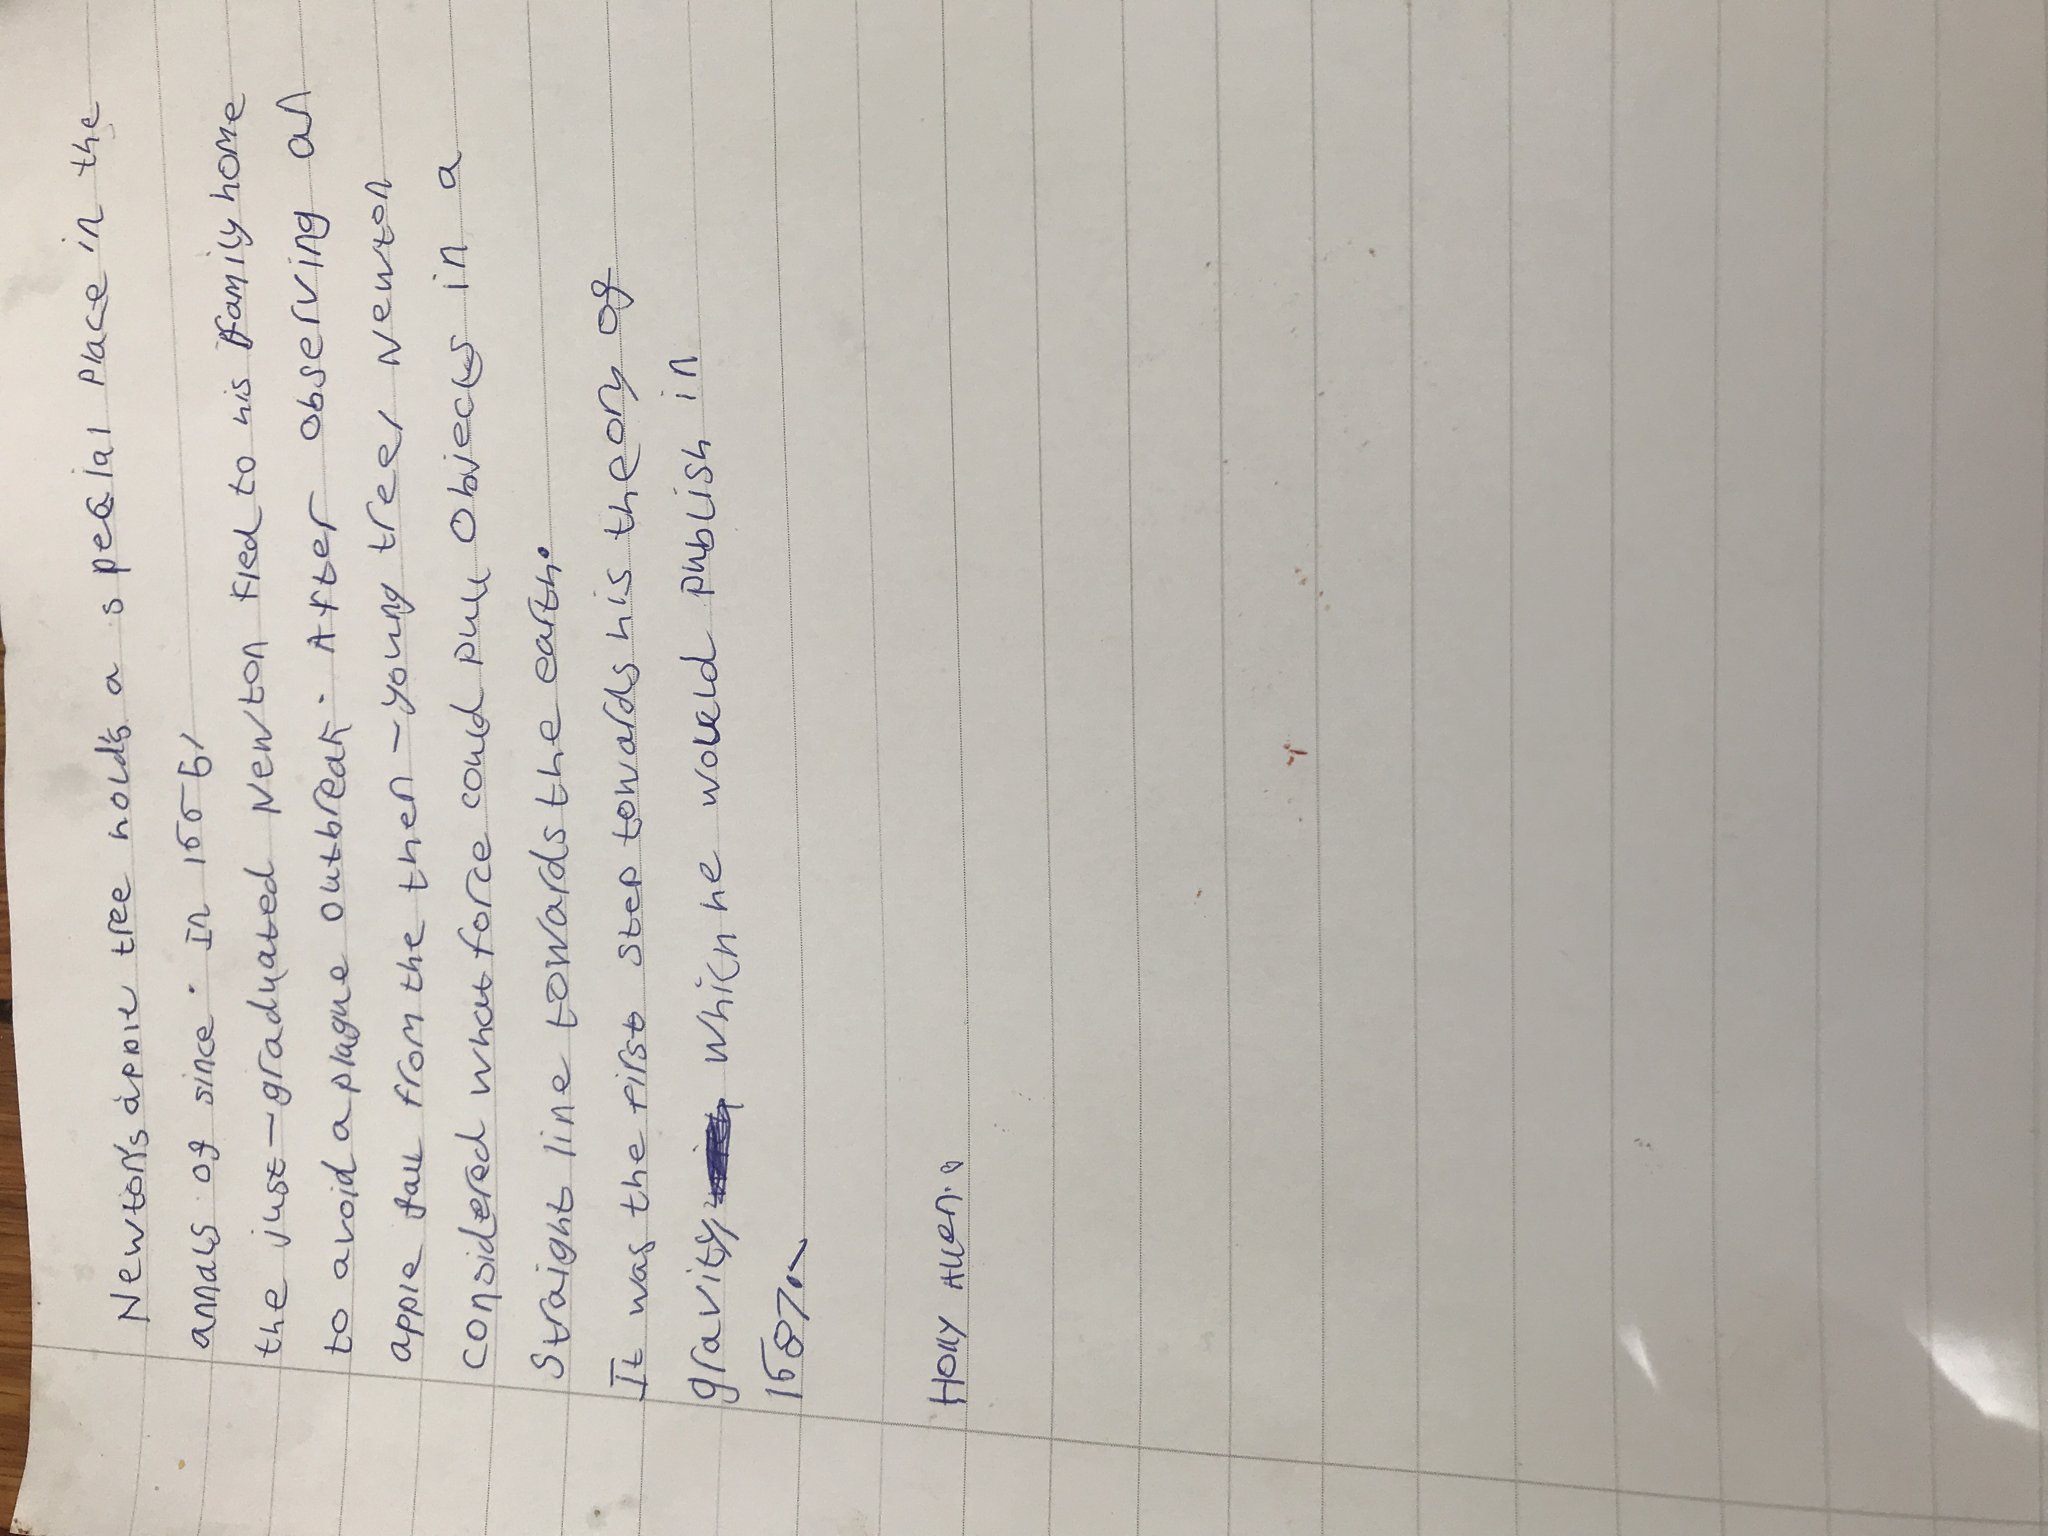 Newton's apple tree holds a special place in the
annals of since. In 1665,
the just-graduated Newton fled to his family home
to avoid a plague outbreak. After observing an
apple fall from the then-young tree, Newton
considered what force could pull objects in a
straight line towards the earth.
It was the first step towards his theory of
gravity, which he would publish in
1687.
Holly Allen.